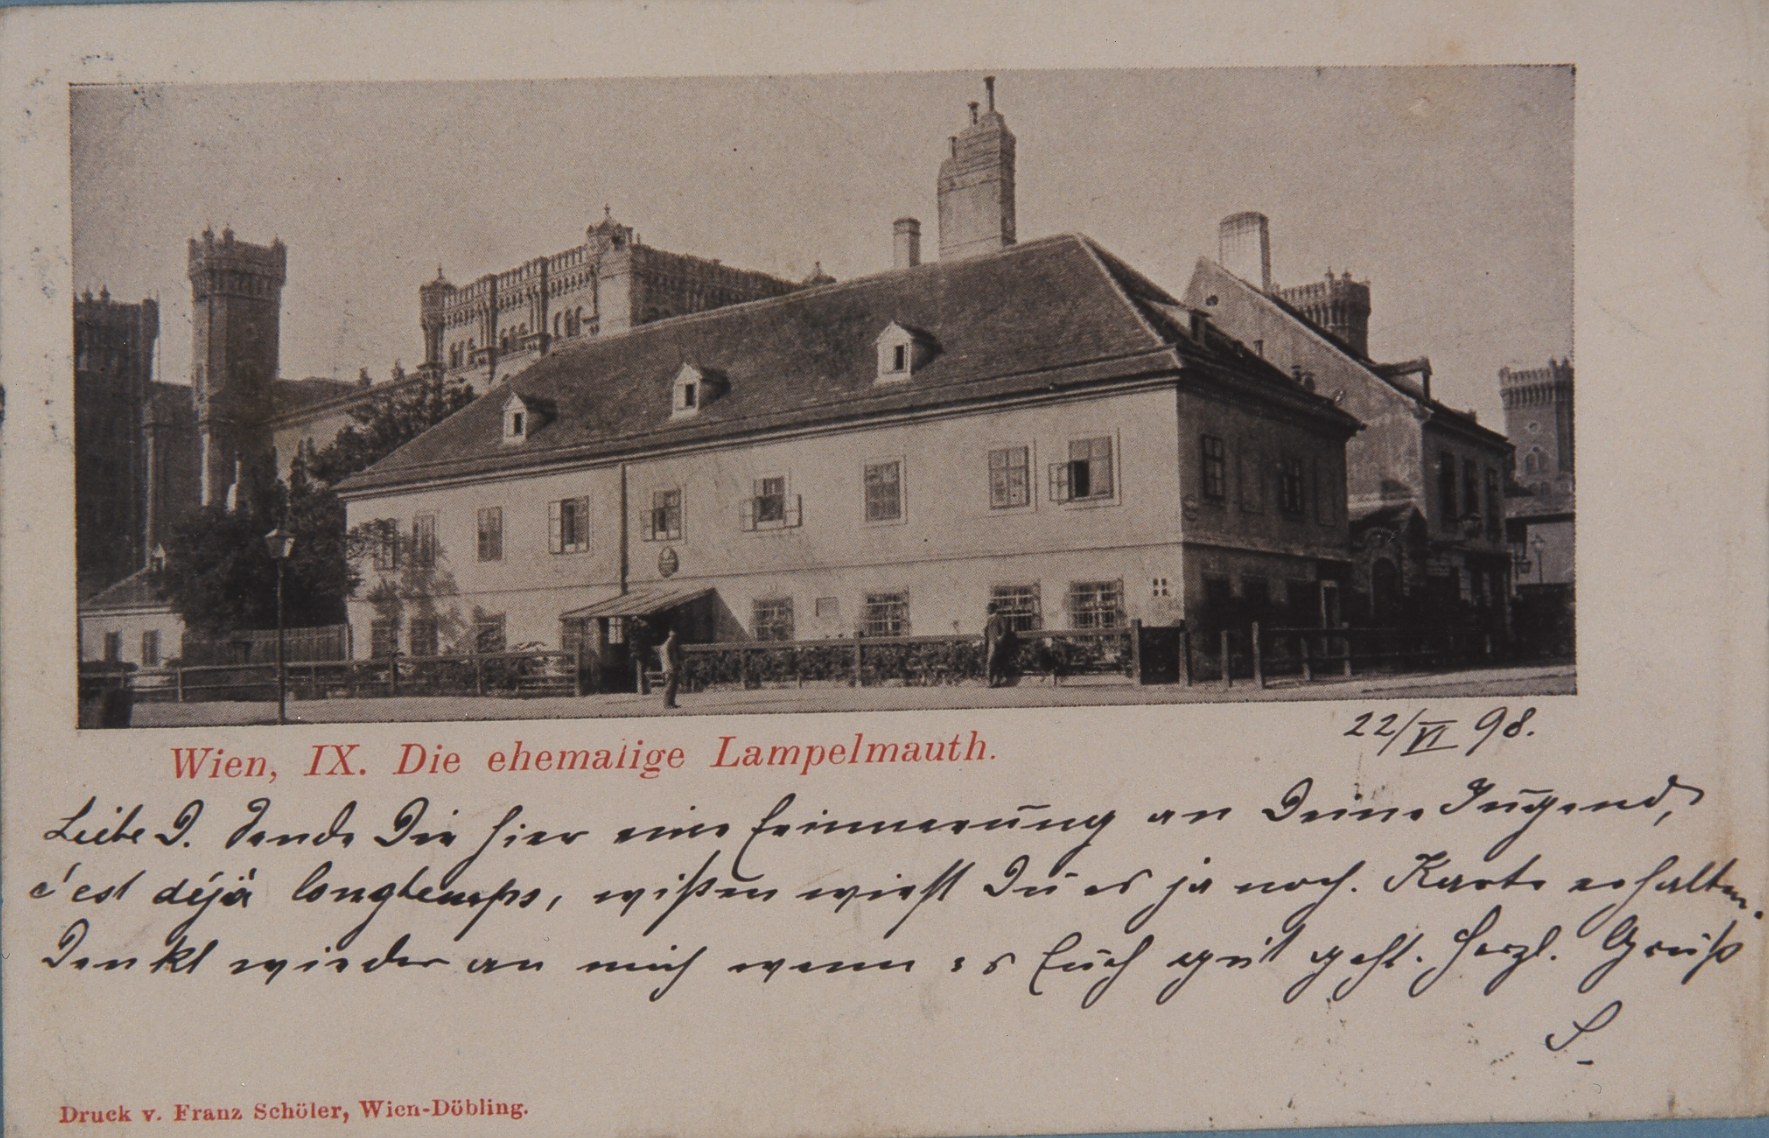 Wien, IX. Die ehemalige Lampelmauth.
22/VI 98.
Liebe D. Sende Dir hier eine Erinnerung an Deine Jugend,
c'est déjà longtemps, wißen wirst Du es ja noch. Karte erhalten.
Denkt wieder an mich wenn es Euch gut geht. Herzl. Gruß
S.
Druck v. Franz Schöler, Wien-Döbling.